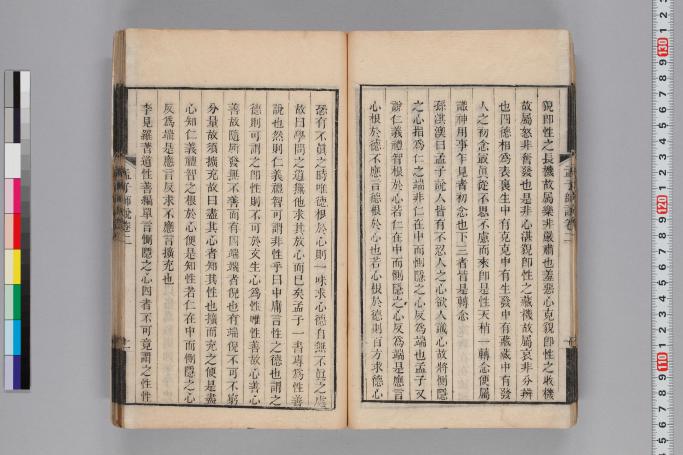 貌即性之長機故屬樂非嚴肅也羞惡心克貌即性之收機
故屬怒非奮發也是非心湛貌即性之藏機故屬哀非分辨
也四德相為表裏生中有克克中有生發中有藏藏中有發
人之初念最眞從不思不慮而來即是性天稍一轉念便屬
識神用事乍見者初念也下三者皆是轉念
孫淇澳曰孟子說人皆有不忍人之心欲人識心故將惻隱
之心指為仁之端非仁在中而惻隱之心反為端也孟子又
說仁義禮智根於心若仁在中而惻隱之心反為端是應言
心根於德不應言德根於心也若心根於德則百方求德心
恐有不眞之時唯德根於心則一味求心德自無不眞之處
故曰學問之道無他求其放心而已矣孟子一書專為性善
說也然則仁義禮智可謂非性乎曰中庸言性之德也謂之
德則可謂之即性則不可於文生心為性唯性善故心善心
善故隨所發無不善而有四端端者倪也有端倪不可不窮
分量故須擴充故曰盡其心者知其性也擴而充之便是盡
心知仁義禮智之根於心便是知性若仁在中而惻隱之心
反為端是應言反求不應言擴充也
李見羅著道性善編單言惻隱之心四者不可竟謂之性性
孟子師說卷二
孟子師說卷二